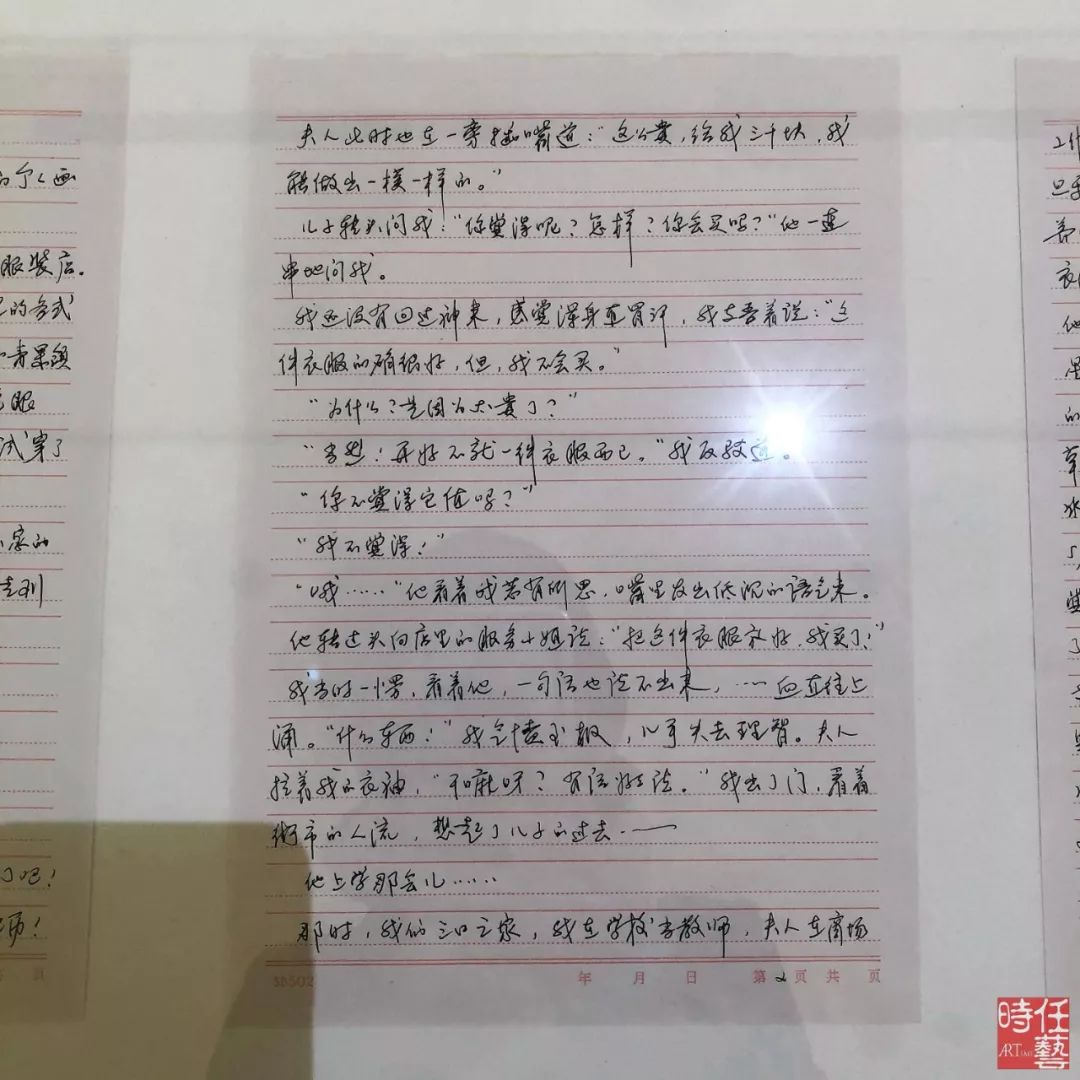 夫人此时也在一旁插嘴道：“这么贵，给我三千块，我
能做出一模一样的。”
儿子转头问我：“你觉得呢？怎样？你会买吗？”他一连
串地问我。
我还没有回过神来，感觉浑身直冒汗，我支吾着说：“这
件衣服的确很好，但，我不会买。”
“为什么？是因为太贵了？”
“当然！再好不就一件衣服而已。”我反驳道。
“你不觉得它值吗？”
“我不觉得！”
“哦……”他看着我若有所思，嘴里发出低沉的语气来。
他转过头向店里的服务小姐说：“把这件衣服衣好，我买了！”
我当时一愣，看着他，一句话也说不出来，……血直往上
涌。“什么东西！”我气愤至极，几乎失去理智。夫人
拉着我的衣袖，“干嘛呀？有话好好说。”我出了门，看着
街市的人流，想起了儿子的过去·——
他上学那会儿……
那时，我们三口之家，我在学校当教师，夫人在商场
3b502 年 月 日 第2页 共 页
的个人画
服装店.
的各式
试穿了
家的
了吧！
页
工作
衣
他
的
草
水
時任藝
ART